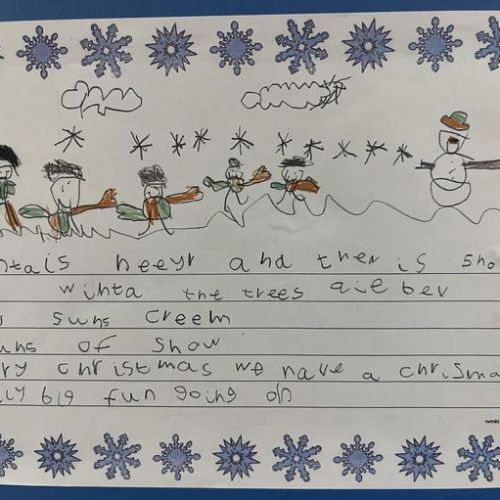 ntais heeyr and ther is sno
winta the trees
suns creem
uns of snow
ry christmas we have a chrisma
ly big fun going on